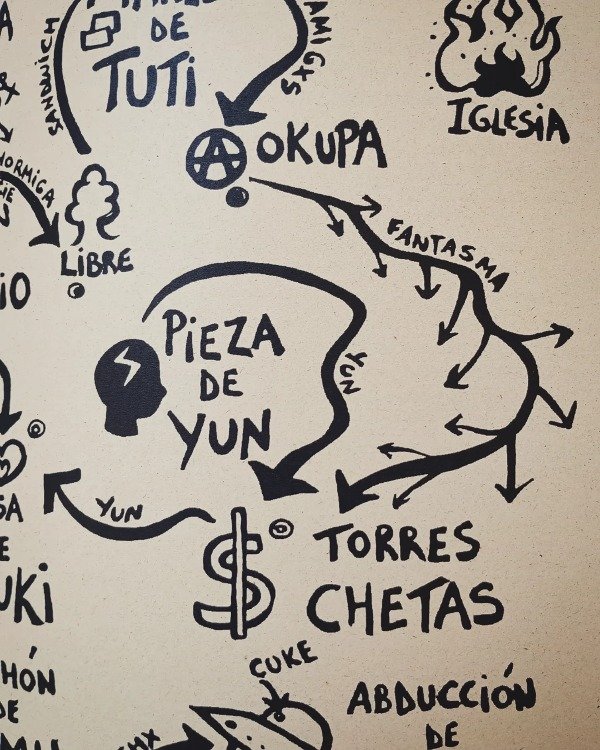 DE
TUTI
SANDWICH
AMIGXS
IGLESIA
OKUPA
HORMIGA
LIBRE
FANTASMA
PIEZA
DE
YUN
YUN
YUN
TORRES
CHETAS
CUKE
ABDUCCIÓN
DE